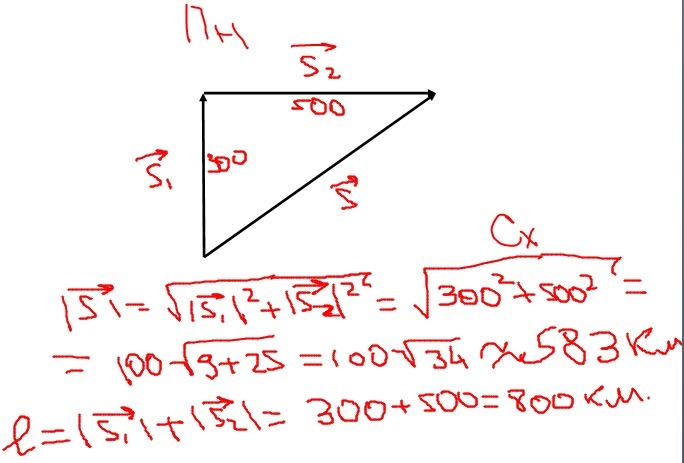 Пн
S⃗₂
500
S⃗₁
300
S⃗
Сх
|S⃗| = √|S⃗₁|² + |S⃗₂|² = √300² + 500² =
= 100√9+25 = 100√34 ≈ 583 км
l = |S⃗₁| + |S⃗₂| = 300 + 500 = 800 км.